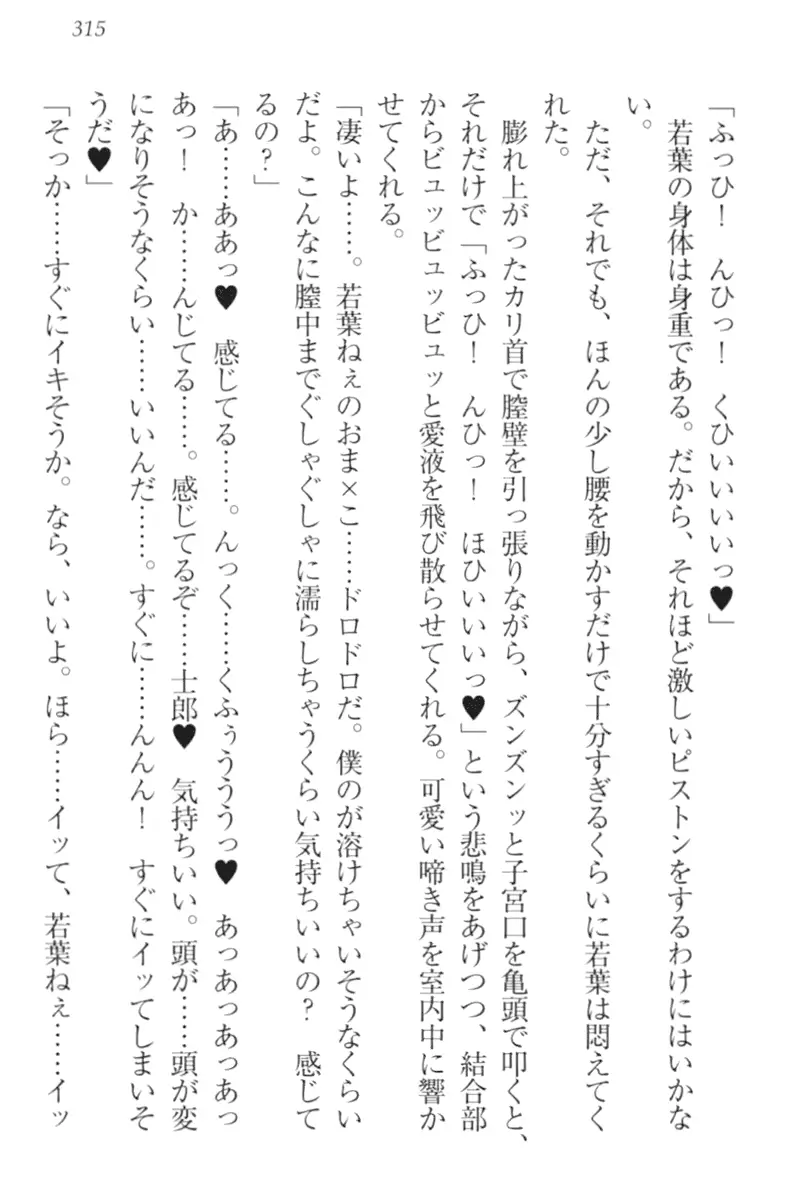 315
「ふっひ！　んひっ！　くひいいいいっ♥」
　若葉の身体は身重である。だから、それほど激しいピストンをするわけにはいかな
い。
　ただ、それでも、ほんの少し腰を動かすだけで十分すぎるくらいに若葉は悶えてく
れた。
　膨れ上がったカリ首で膣壁を引っ張りながら、ズンズンッと子宮口を亀頭で叩くと、
それだけで「ふっひ！　んひっ！　ほひいいいっ♥」という悲鳴をあげつつ、結合部
からビュッビュッビュッと愛液を飛び散らせてくれる。可愛い啼き声を室内中に響か
せてくれる。
「凄いよ……。若葉ねぇのおま×こ……ドロドロだ。僕のが溶けちゃいそうなくらい
だよ。こんなに膣中までぐしゃぐしゃに濡らしちゃうくらい気持ちいいの？　感じて
るの？」
「あ……ああっ♥　感じてる……。んっく……くふぅううっ♥　あっあっあっあっ
あっ！　か……んじてる……。感じてるぞ……士郎♥　気持ちいい。頭が……頭が変
になりそうなくらい……いいんだ……。すぐに……んんん！　すぐにイッてしまいそ
うだ♥」
「そっか……すぐにイキそうか。なら、いいよ。ほら……イッて、若葉ねぇ……イッ